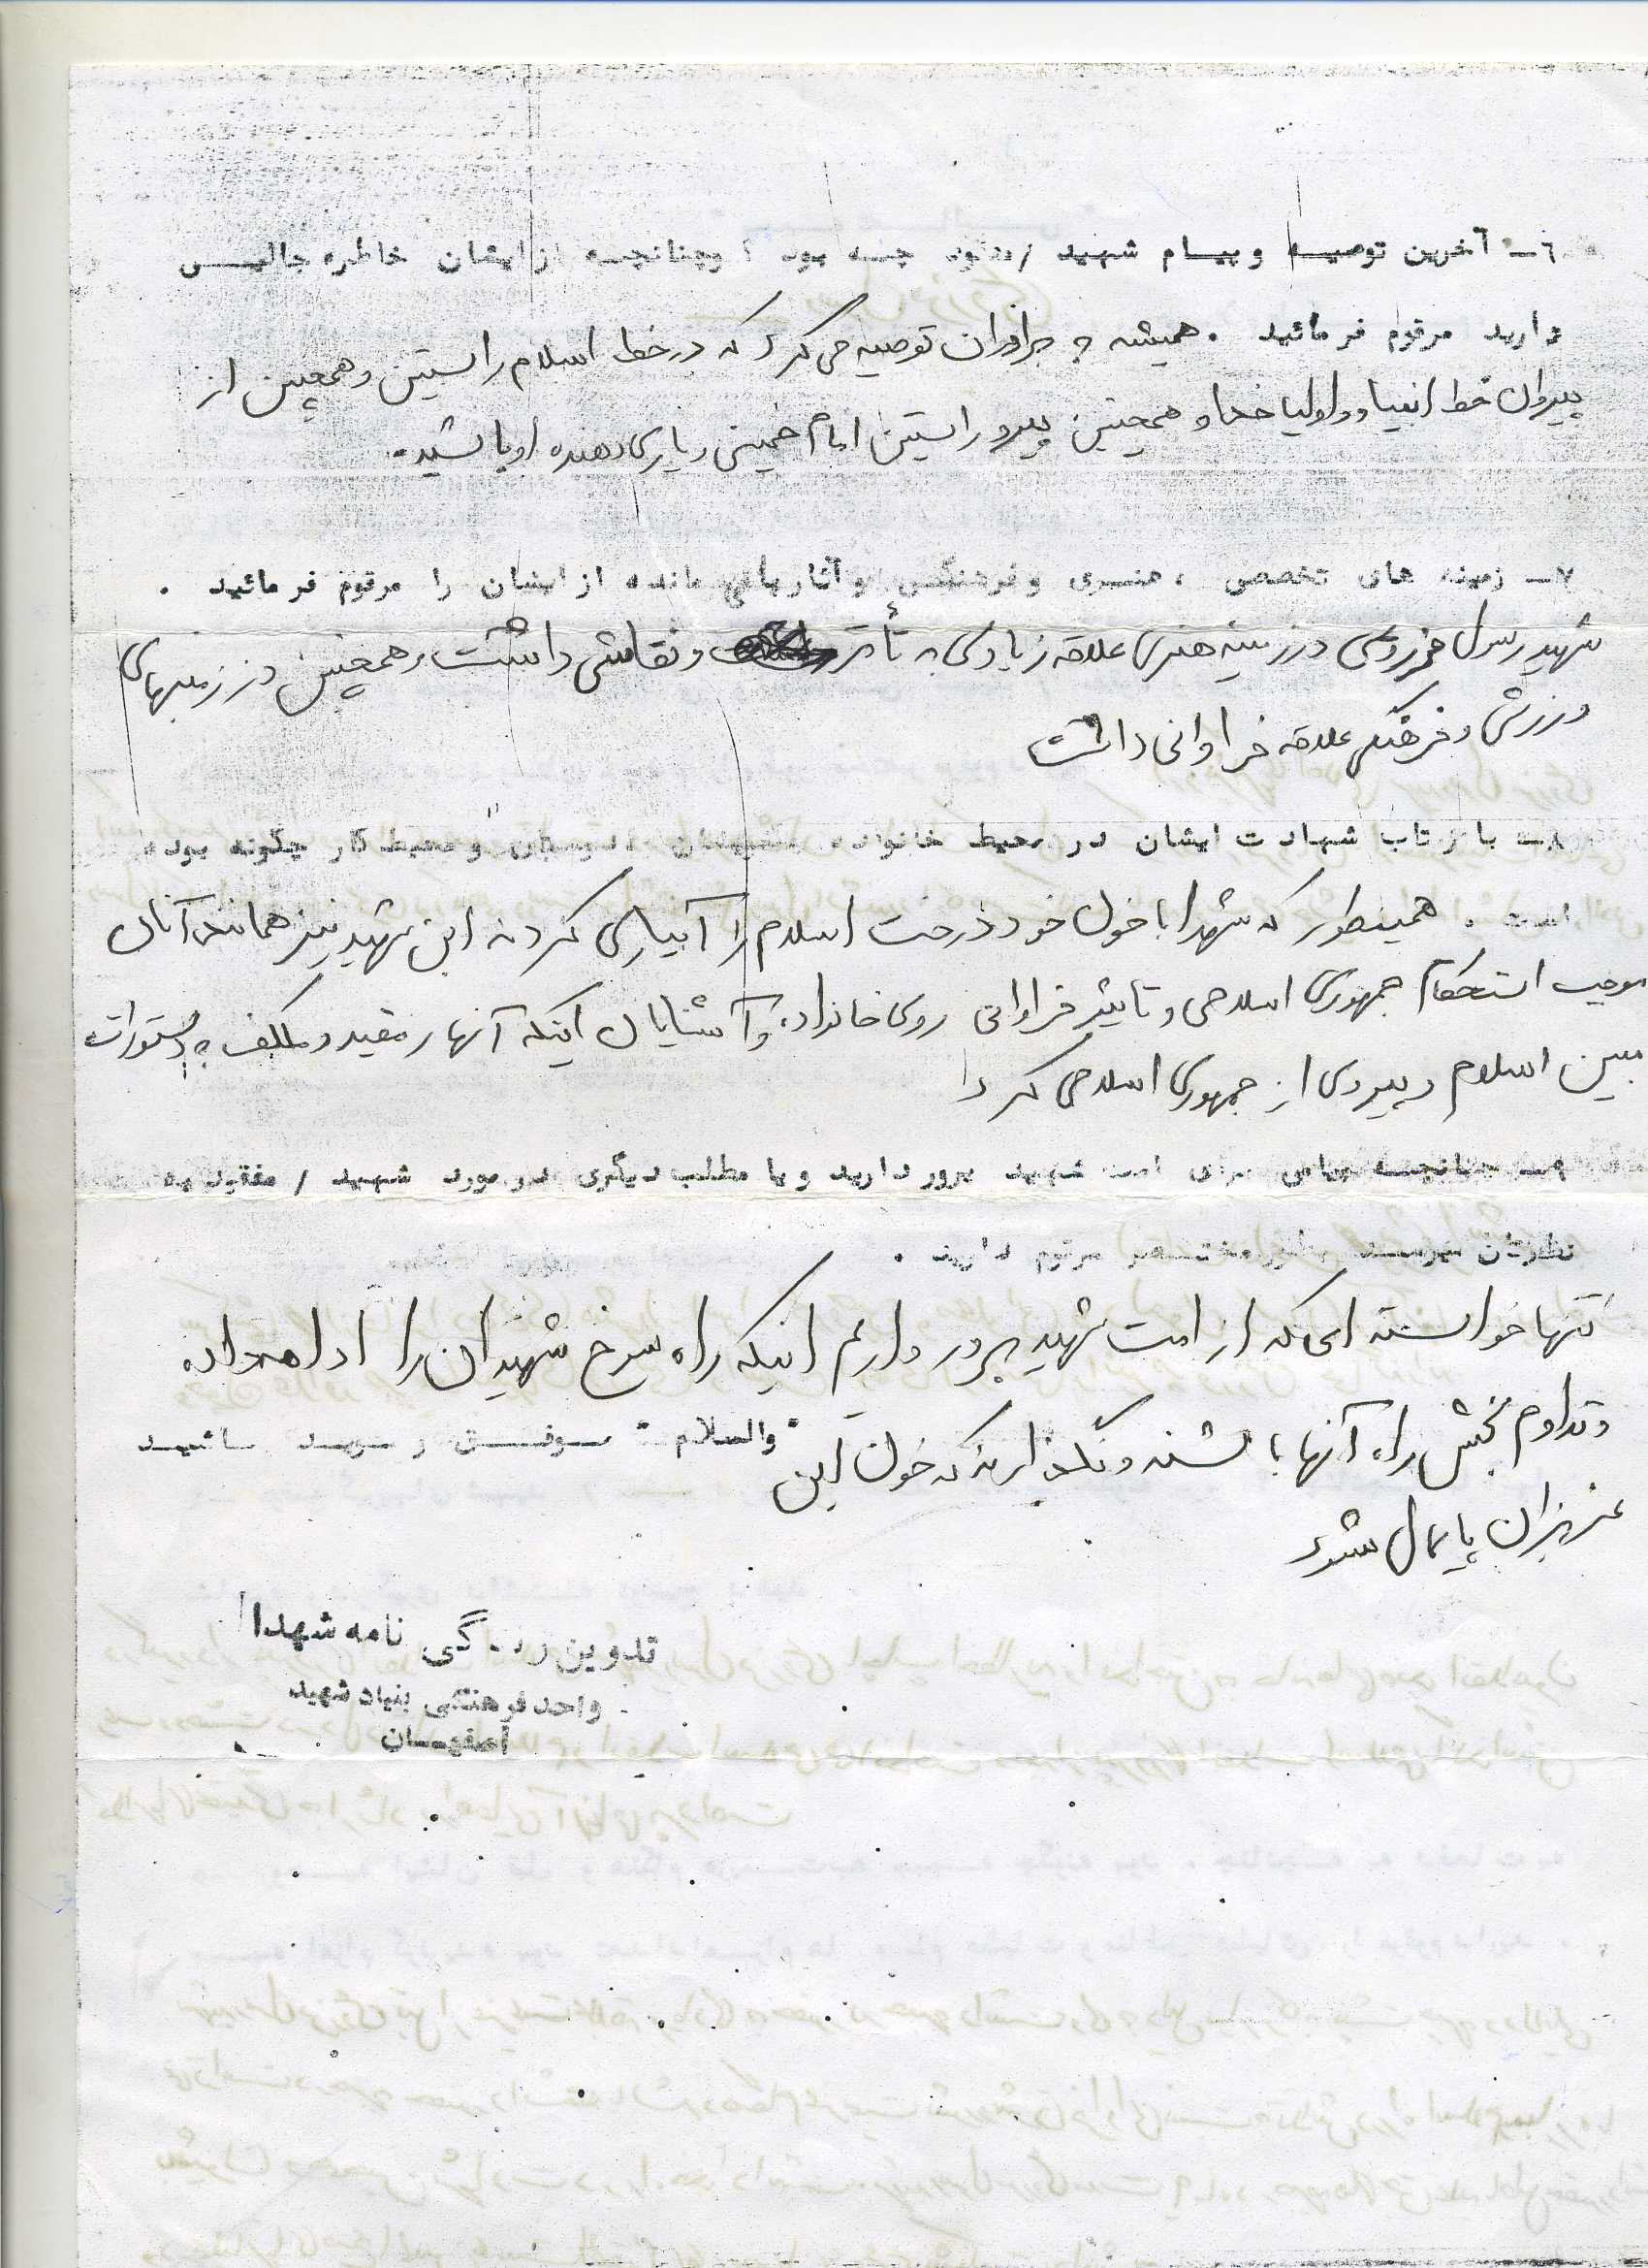 ٦ـ آخرین توصیــه و پیــام شهید / مفقود چــه بود ؟ وچنانچــه از ایشان خاطره جالبــی
دارید مرقوم فرمائید . همیشه به برادران توصیه می کرد که در خط اسلام راستین و همچنین از
پیروان خط انبیا و اولیا خدا و همچنین پیرو راستین امام خمینی و یاری دهنده او باشید.
٧ـ زمینه های تخصصی ، هنــری و فرهنگــی و آثار باقی مانده از ایشان را مرقوم فرمائید .
شهید رسول در زمینه هنری علاقه زیادی به تأتر و نقاشی داشت و همچنین در زمینهای
ورزش و فرهنگی علاقه فراوانی داشت
٨ـ بازتاب شهادت ایشان در محیط خانواده دوستان و محیط کار چگونه بوده
است . همینطور که شهدا با خون خود درخت اسلام را آبیاری کردند این شهید نیز همانند آنان
موجب استحکام جمهوری اسلامی و تاثیر فراوانی روی خانواده و آشنایان اینکه آنها را مقید و مکلف به دستورات
مبین اسلام و پیروی از جمهوری اسلامی کرد
٩ـ چنانچــه پیامی برای امت شهید پرور دارید و یا مطلب دیگری در مورد شهید / مفقود به
نظرتان میرســد بطور مختــصر مرقوم دارید .
تنها خواسته ای که از امت شهید پرور داریم اینکه راه سرخ شهیدان را ادامه داده
و تداوم بخش راه آنها باشند و نگذارند که خون این
" والسلام " موفــق و مویــد باشیــد
عزیزان پایمال شود
تدوین زندگی نامه شهدا
واحد فرهنگی بنیاد شهید
اصفهــان